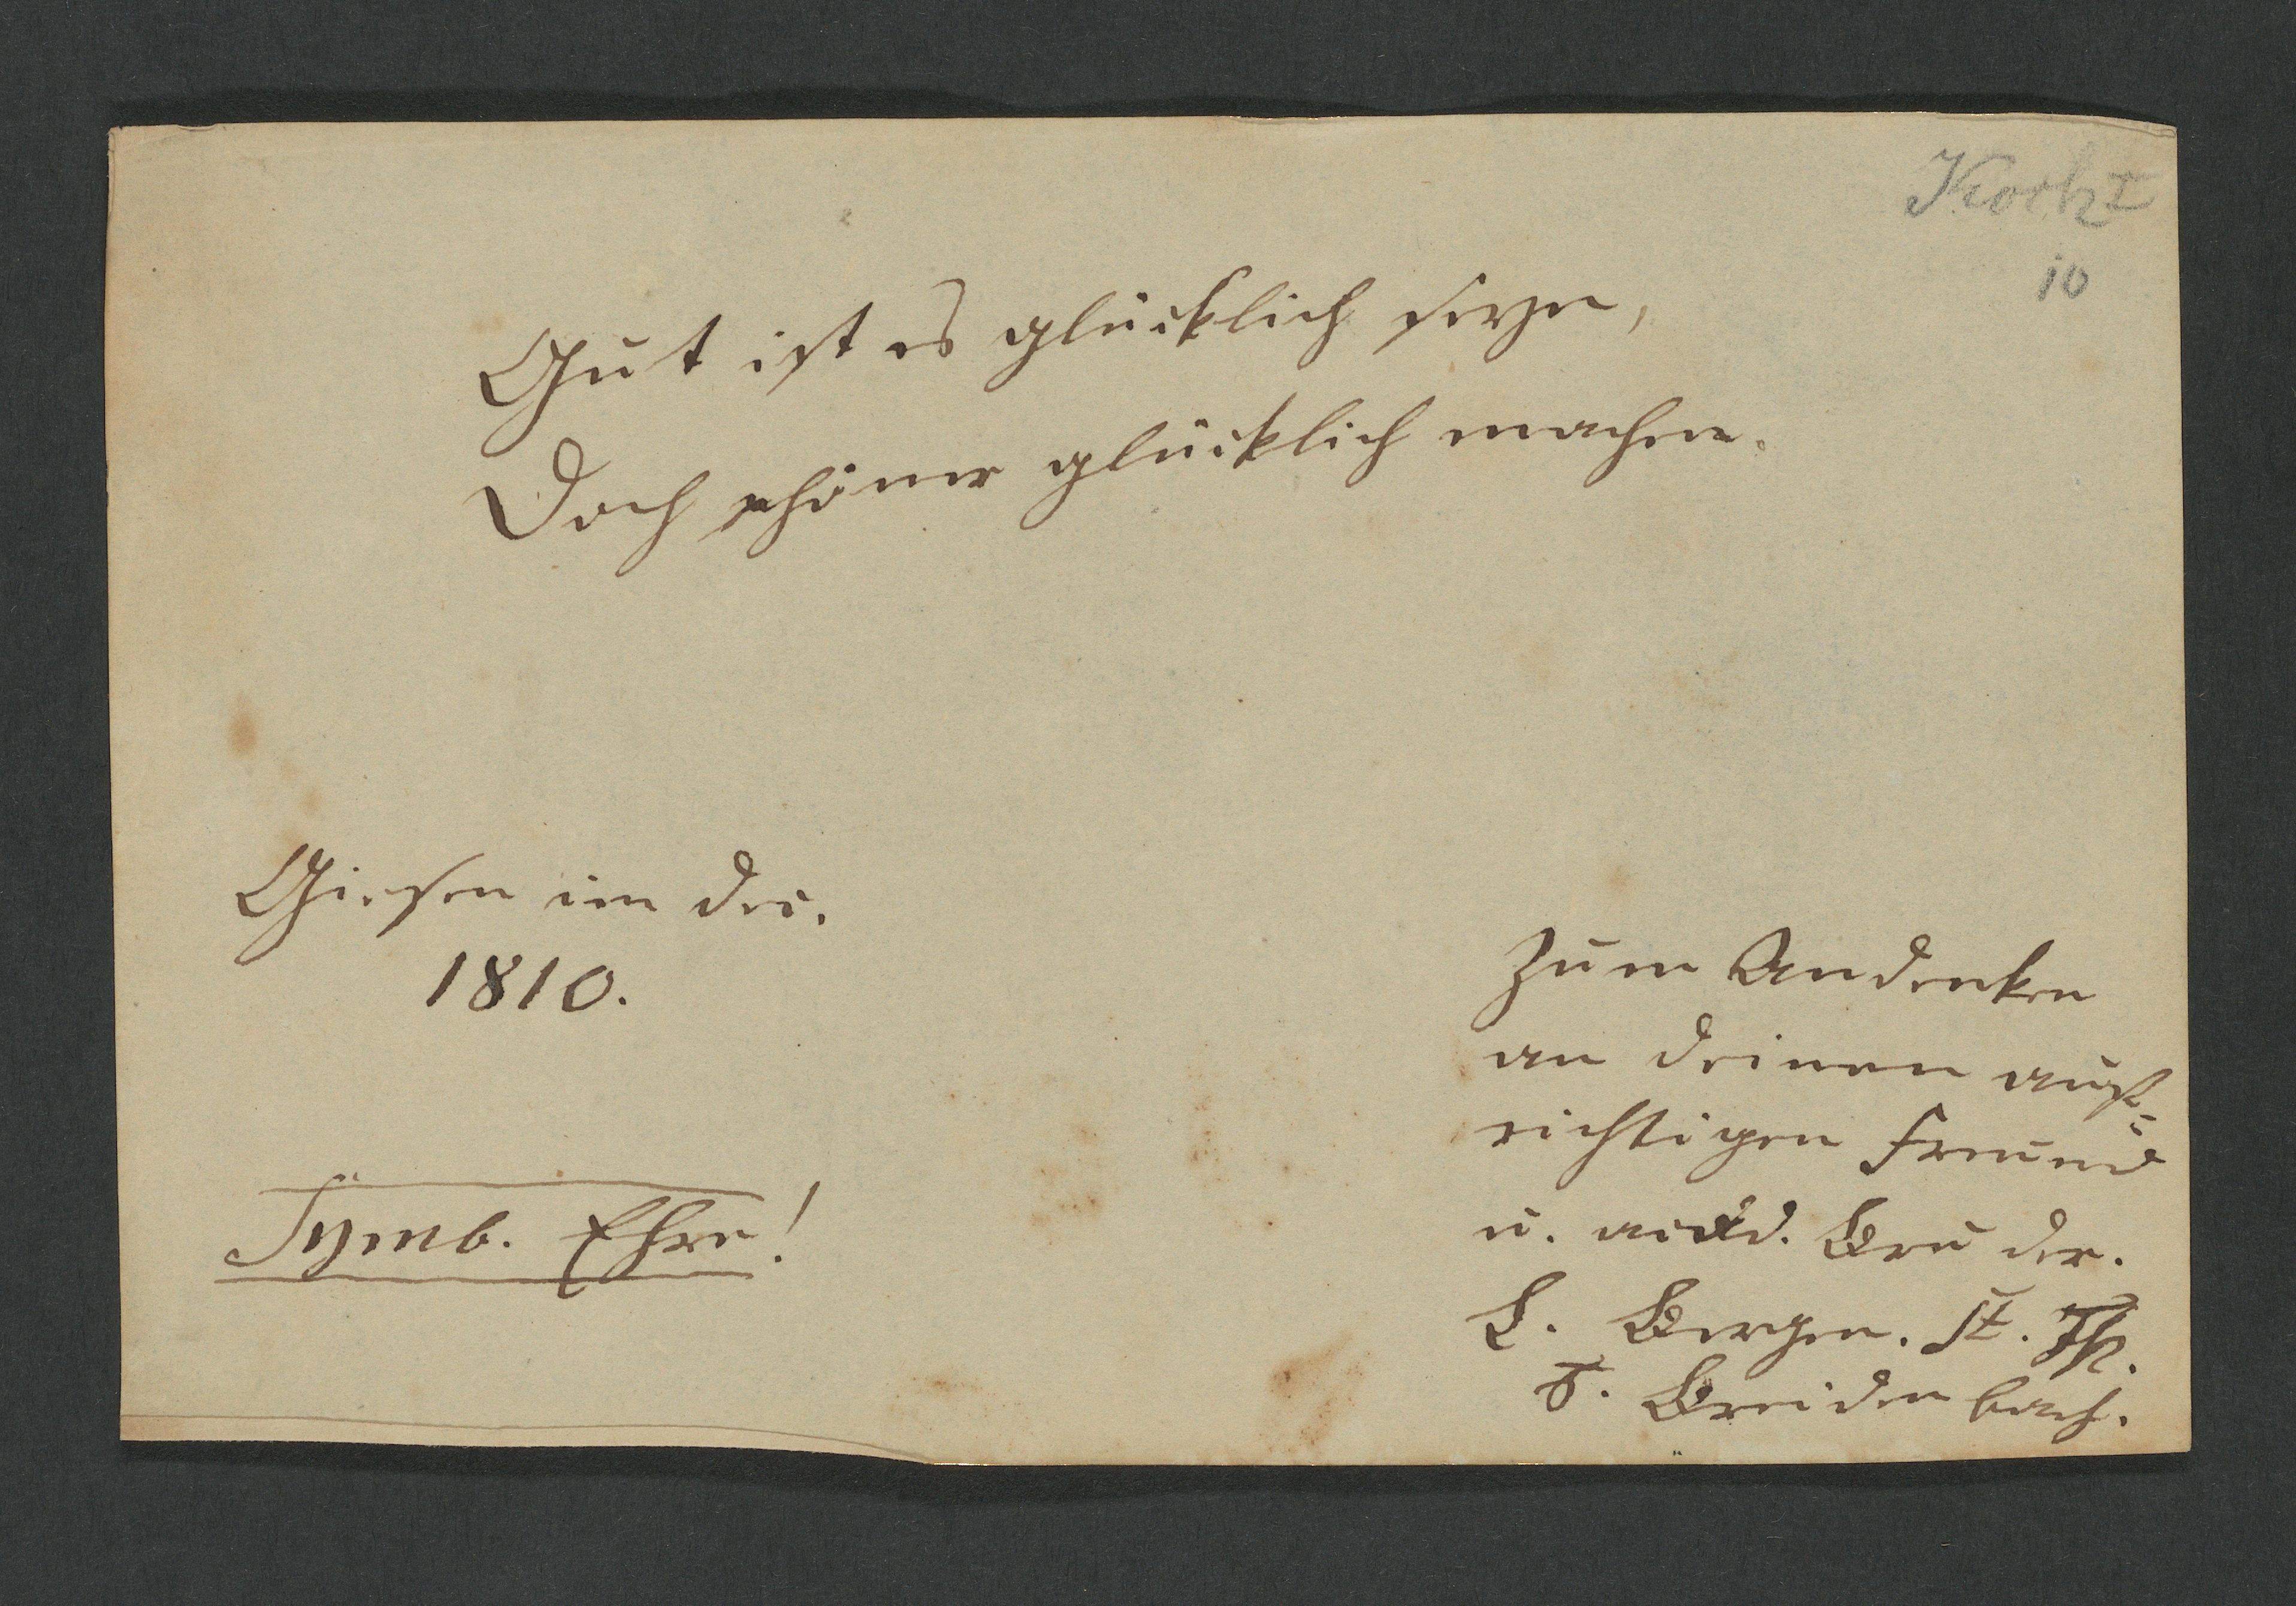 Koch I
10
Gut ist es glücklich seyn,
Doch schöner glücklich machen.
Giesen im Dec.
1810.
Zum Andenken
an deinen auf-
richtigen Freund
u. Bruder.
Symb. Ehre!
L. Bergen. St. Th.
Breidenbach.